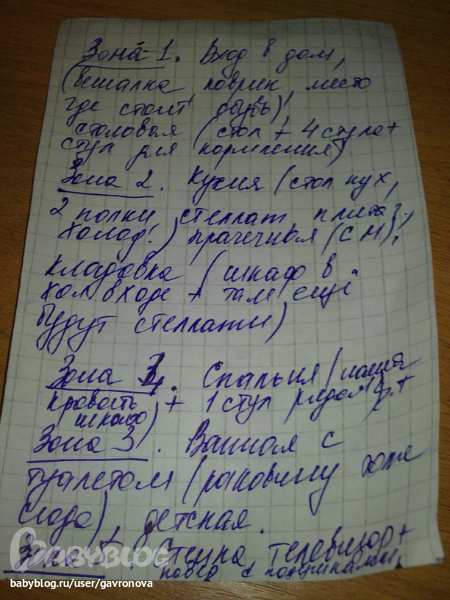 Зона 1. Вход в дом,
(вешалка, коврик, место
где стоит быть),
столовая (стол + 4 стула +
стул для кормления)
Зона 2. Кухня (стол кух,
2 полки, стеллаж, плита г.,
холод.), прачечная (СМ),
кладовка (шкаф в
хол входе + там ещё
будут стеллажи)
Зона 4. Спальня (наша
кровать + 1 стул рядом
шкаф)
Зона 3. Ванная с
туалетом (раковину тоже
сюда), детская.
Зона 5. Стенка, телевизор +
ковёр с подушками,
BABYBLOG
babyblog.ru/user/gavronova